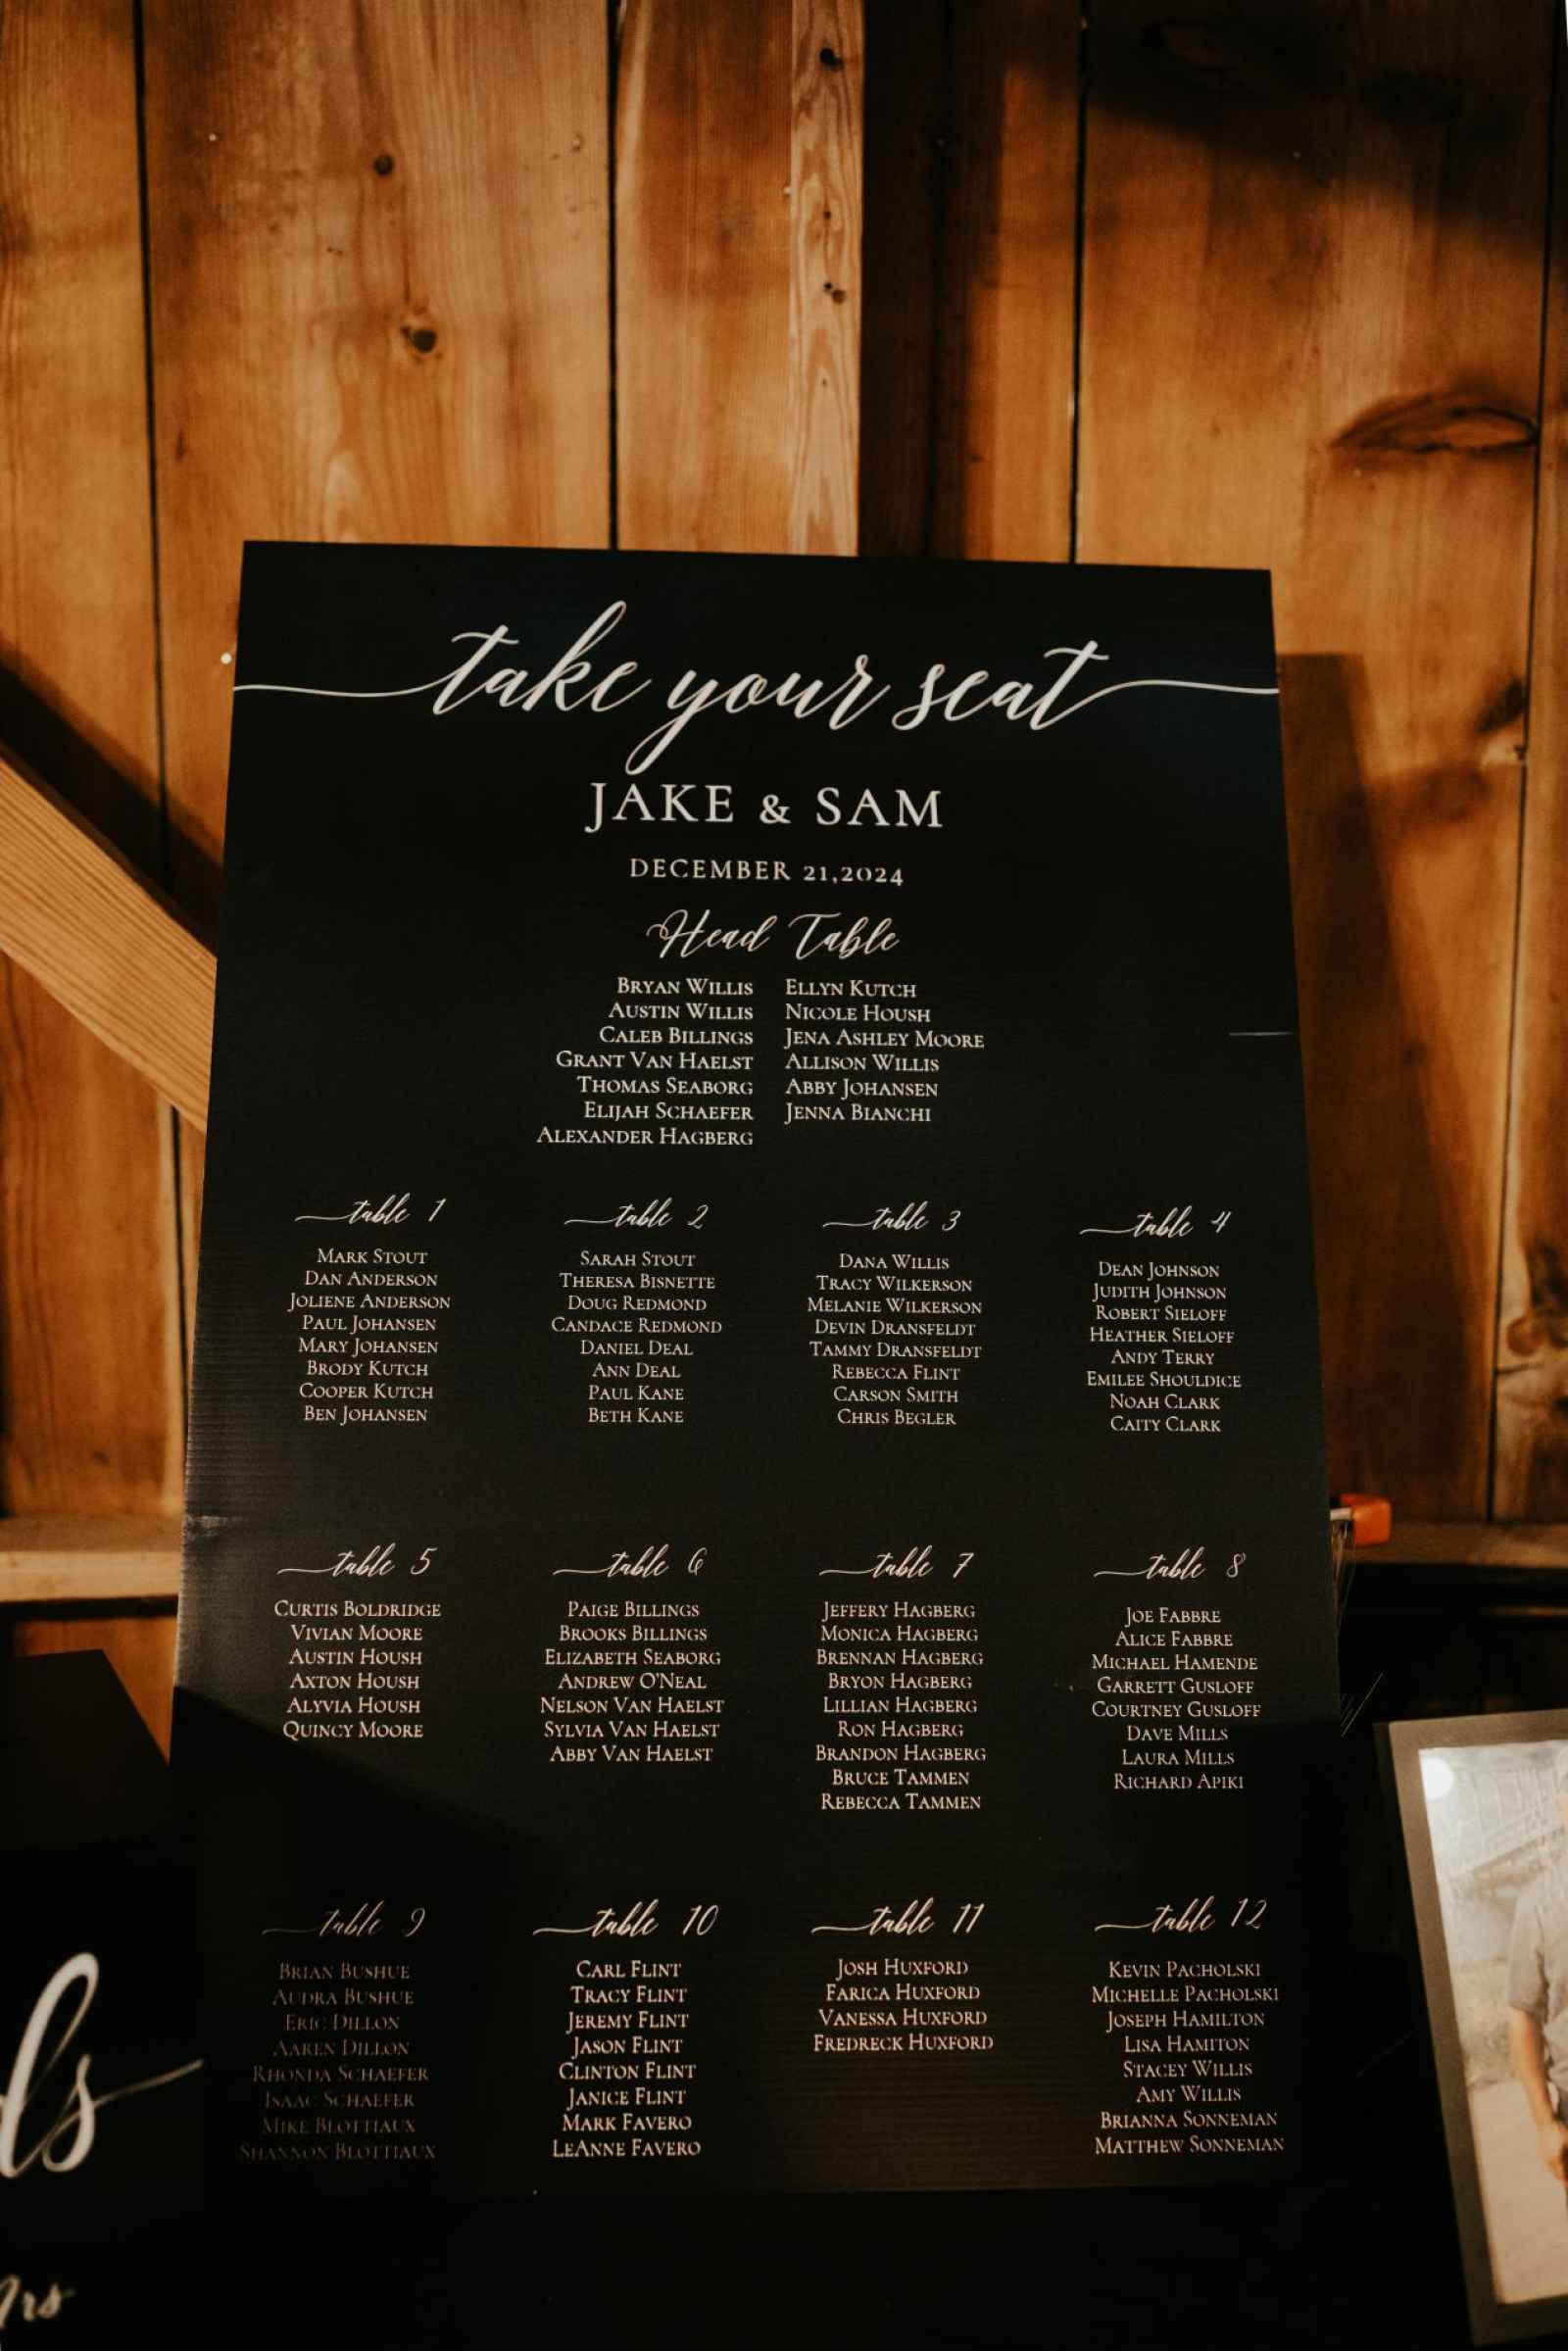 take your seat
JAKE & SAM
DECEMBER 21,2024
Head Table
BRYAN WILLIS
AUSTIN WILLIS
CALEB BILLINGS
GRANT VAN HAELST
THOMAS SEABORG
ELIJAH SCHAEFER
ALEXANDER HAGBERG
ELLYN KUTCH
NICOLE HOUSH
JENA ASHLEY MOORE
ALLISON WILLIS
ABBY JOHANSEN
JENNA BIANCHI
table 1
MARK STOUT
DAN ANDERSON
JOLIENE ANDERSON
PAUL JOHANSEN
MARY JOHANSEN
BRODY KUTCH
COOPER KUTCH
BEN JOHANSEN
table 2
SARAH STOUT
THERESA BISNETTE
DOUG REDMOND
CANDACE REDMOND
DANIEL DEAL
ANN DEAL
PAUL KANE
BETH KANE
table 3
DANA WILLIS
TRACY WILKERSON
MELANIE WILKERSON
DEVIN DRANSFELDT
TAMMY DRANSFELDT
REBECCA FLINT
CARSON SMITH
CHRIS BEGLER
table 4
DEAN JOHNSON
JUDITH JOHNSON
ROBERT SIELOFF
HEATHER SIELOFF
ANDY TERRY
EMILEE SHOULDICE
NOAH CLARK
CAITY CLARK
table 5
CURTIS BOLDRIDGE
VIVIAN MOORE
AUSTIN HOUSH
AXTON HOUSH
ALYVIA HOUSH
QUINCY MOORE
table 6
PAIGE BILLINGS
BROOKS BILLINGS
ELIZABETH SEABORG
ANDREW O'NEAL
NELSON VAN HAELST
SYLVIA VAN HAELST
ABBY VAN HAELST
table 7
JEFFERY HAGBERG
MONICA HAGBERG
BRENNAN HAGBERG
BRYON HAGBERG
LILLIAN HAGBERG
RON HAGBERG
BRANDON HAGBERG
BRUCE TAMMEN
REBECCA TAMMEN
table 8
JOE FABBRE
ALICE FABBRE
MICHAEL HAMENDE
GARRETT GUSLOFF
COURTNEY GUSLOFF
DAVE MILLS
LAURA MILLS
RICHARD APIKI
table 9
BRIAN BUSHUE
AUDRA BUSHUE
ERIC DILLON
AAREN DILLON
RHONDA SCHAEFER
ISAAC SCHAEFER
MIKE BLOTTIAUX
SHANNON BLOTTIAUX
table 10
CARL FLINT
TRACY FLINT
JEREMY FLINT
JASON FLINT
CLINTON FLINT
JANICE FLINT
MARK FAVERO
LEANNE FAVERO
table 11
JOSH HUXFORD
FARICA HUXFORD
VANESSA HUXFORD
FREDRECK HUXFORD
table 12
KEVIN PACHOLSKI
MICHELLE PACHOLSKI
JOSEPH HAMILTON
LISA HAMITON
STACEY WILLIS
AMY WILLIS
BRIANNA SONNEMAN
MATTHEW SONNEMAN